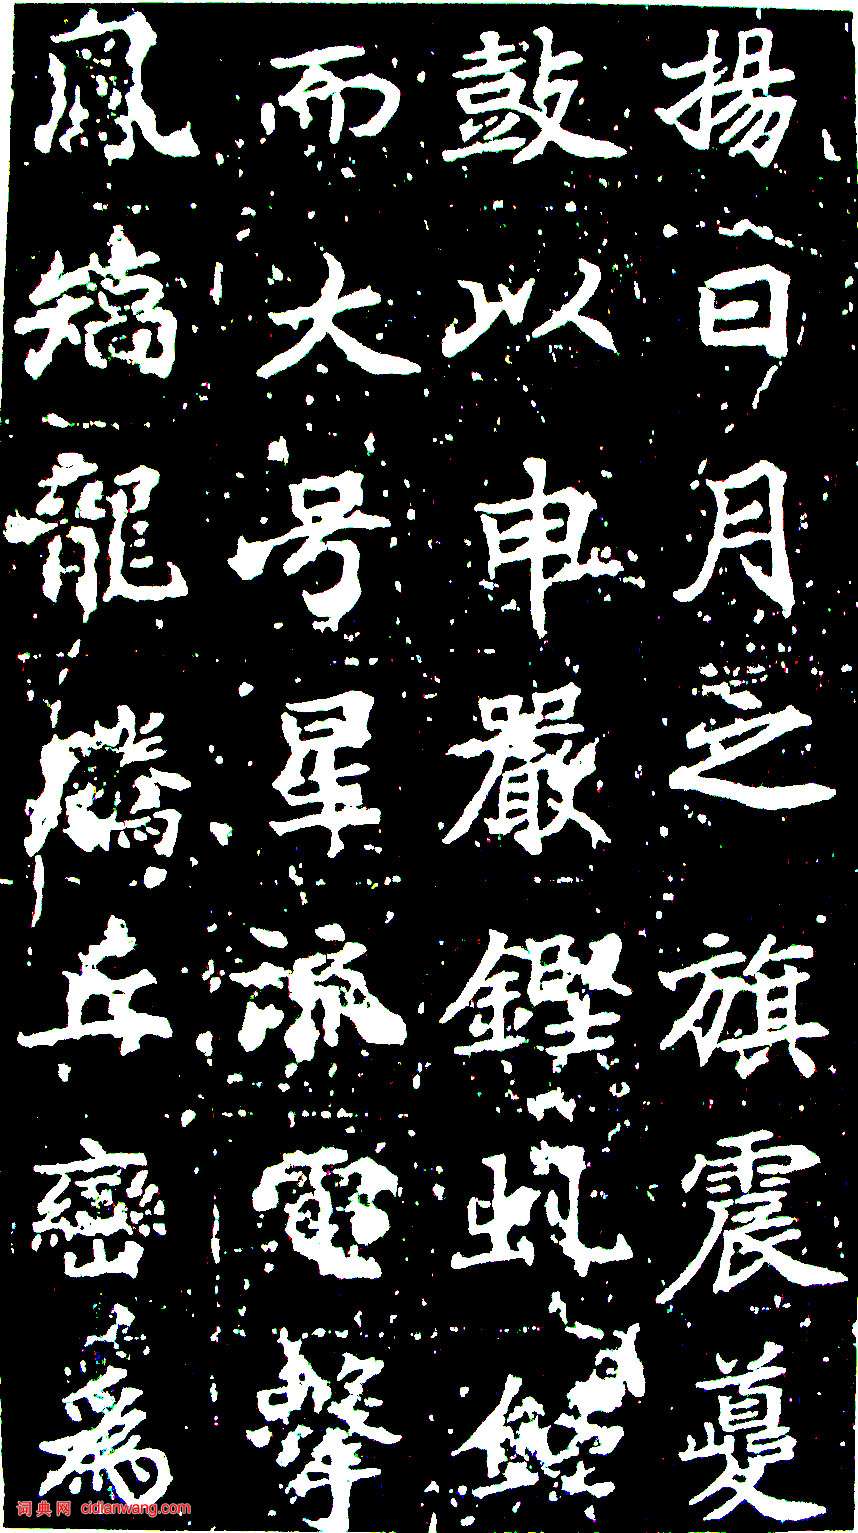 揚日月之旗震夔
鼓以申嚴鏗虬鍾
而大号星流電擊
鳳矯龍騰丘巒為
词典网 cidianwang.com